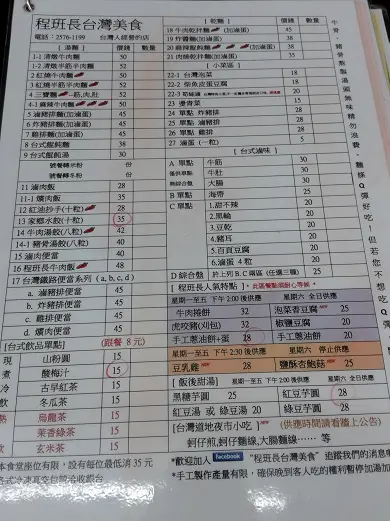 程班長台灣美食
電話：2576-1199 台灣人經營的店
[湯麵] 價錢 數量
1-1 清燉牛肉麵 50
1-2 清燉半筋半肉麵 52
2 紅燒牛肉麵 50
3 紅燒半筋半肉麵 52
6 炸豬排麵(加滷蛋) 45
7 雞排麵(加滷蛋) 45
8 台式餛飩麵
9 台式餛飩湯 30
11 滷肉飯 28
11-1 爌肉飯 35
12 紅油抄手(十粒) 28
13 家鄉水餃(十粒) 35
14 牛肉湯餃(八粒) 42
14-1 豬骨湯餃(八粒) 40
15 滷肉便當 40
16 程班長牛肉飯 48
17 台灣鐵路便當系列 (a, b, c, d)
a. 滷豬排便當 45
b. 炸豬排便當 45
c. 雞排便當 45
d. 爌肉便當 45
[台式飲品單點] (跟餐 8元)
山粉圓 15
酸梅汁 15
古早紅茶 15
冬瓜茶 15
烏龍茶 15
茉香綠茶 15
玄米茶 15
[乾麵] 價錢 數量
18 牛肉乾拌麵(加滷蛋) 45
19 炸醬麵(加滷蛋) 38
21 肉燥乾拌麵(加滷蛋) 38
[小菜區]
22-1 台灣泡菜 18
22-2 柴魚皮蛋豆腐 18
23 燙青菜 15
24 單點 炸豬排 25
25 單點 滷豬排 25
26 單點 雞排 25
27 滷蛋(一粒) 5
[台式滷味]
A 單點 牛筋 35
牛肚 35
大腸 30
B 單點 海帶 25
C 單點 1.甜不辣 20
2.黑輪 20
3.豆乾 20
4.豬耳 20
5.百頁豆腐 20
6.滷蛋 4粒 20
D 綜合盤 於上列 B.C 兩區 (任選三種) 25
[程班長人氣特點]
星期一至五 下午 2:00 後供應 星期六 全日供應
牛肉捲餅 32 泡菜臭豆腐 25
虎咬豬(刈包) 32 椒鹽豆腐 20
手工蔥油餅 28 手工蔥油餅+蛋 28
星期一至五 下午 2:30 後供應 星期六 停止供應
豆乳雞 28 鹽酥杏鮑菇 25
[飯後甜湯] 星期一至五 下午 2:00 後供應 星期六 全日供應
黑糖芋圓 25 紅豆芋圓 28
紅豆湯 或 綠豆湯 20 綠豆芋圓 28
[台灣道地夜市小吃] (供應時間請看牆上公告)
蚵仔煎,蚵仔麵線,大腸麵線…… 等
*歡迎加入 facebook "程班長台灣美食"
*手工製作產量有限，
本食堂座位有限，設有每位最低消 35 元